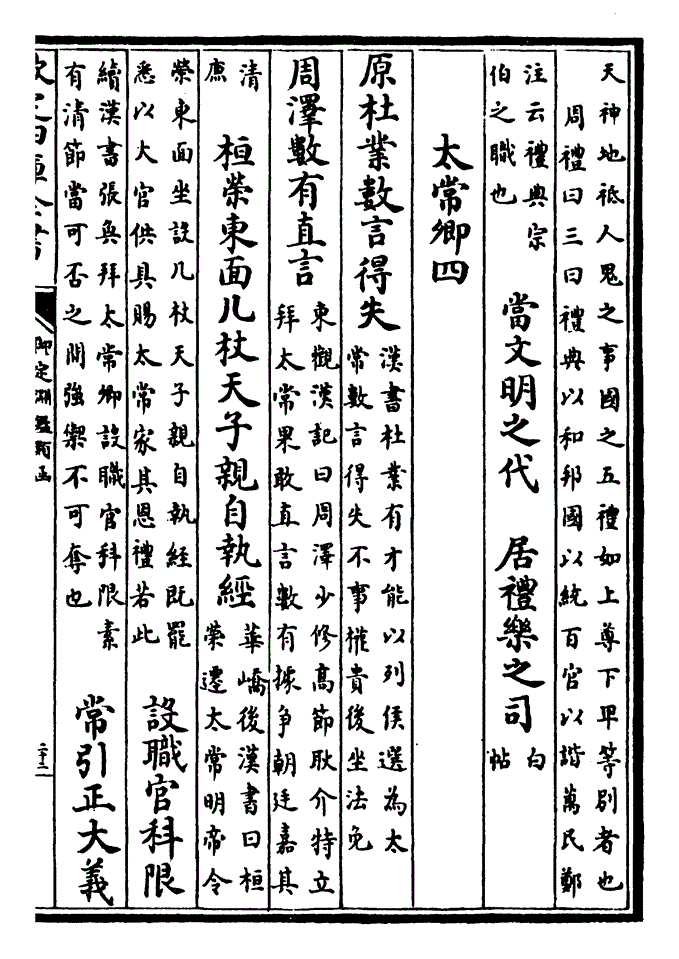 天神地祗人鬼之事國之五禮如上尊下卑等别者也
周禮曰三曰禮典以和邦國以統百官以諧萬民鄭
注云禮典宗
伯之職也
當文明之代　居禮樂之司
白
帖
太常卿四
原杜業數言得失
漢書杜業有才能以列侯選為太
常數言得失不事權貴後坐法免
周澤數有直言
東觀漢記曰周澤少修高節耿介特立
拜太常果敢直言數有據争朝廷嘉其
清
庶
桓榮東面几杖天子親自執經
華嶠後漢書曰桓
榮遷太常明帝令
榮東面坐設几杖天子親自執經既罷
悉以大官供具賜太常家其恩禮若此
設職官科限
續漢書張奐拜太常卿設職官科限素
有清節當可否之間強禦不可奪也
常引正大義
欽定四庫全書
御定淵鑑類函
二十二